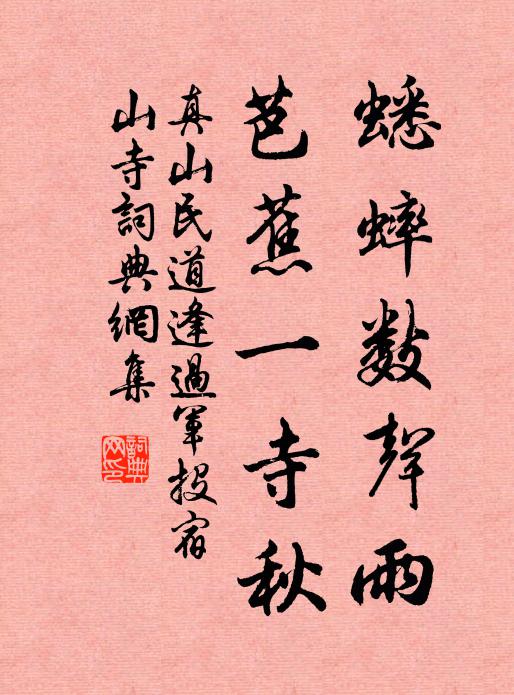 蟋蟀數聲雨
芭蕉一寺秋
真山民道逢過軍投宿
山寺詞典網集
詞典
网印